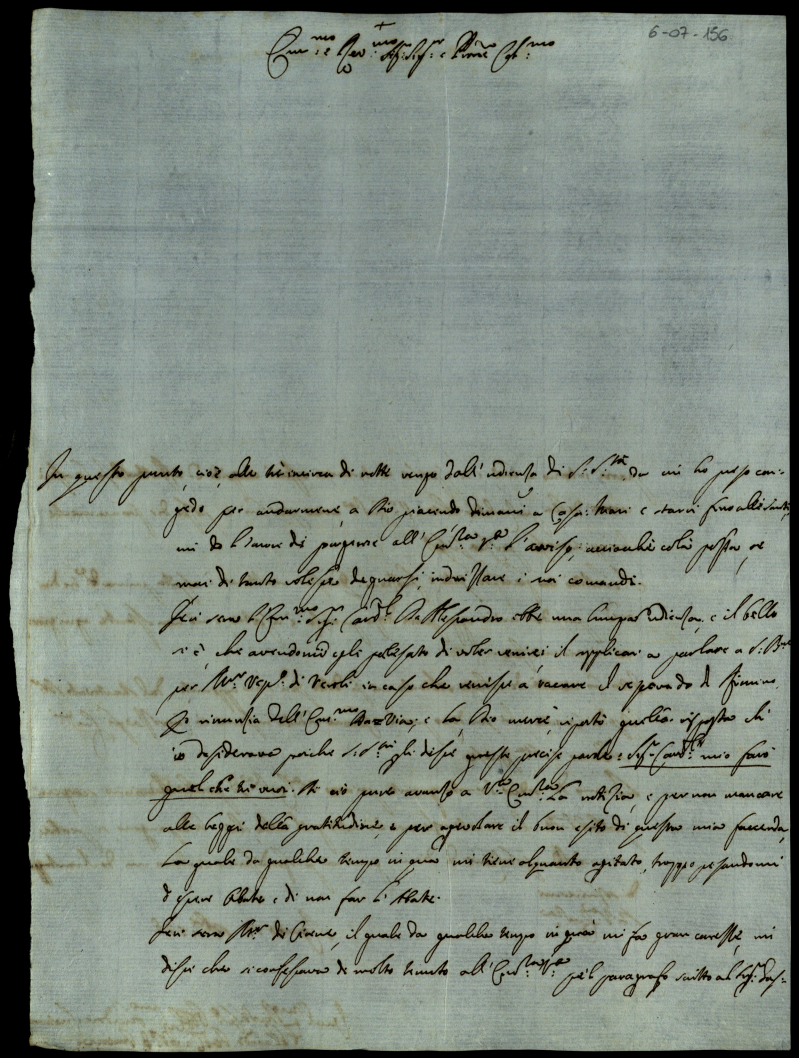 6-07-156
+
Em:mo e Rev:mo Sig:r Sig:r e Prone Col:mo
In questo punto, cioè alle tre in circa di notte vengo dall'udienza di S: S:tà, da cui ho preso con-
gedo per andarmene, a Dio piacendo dimani a Casa: Mari e starvi fino alli Santi,
mi do l'onore di porgerne all'Em:za V:ra l'avviso, acciochè colà possa, se
mai di tanto volesse degnarsi, indrizzare i suoi comandi.
Jeri sera l'Em:mo Sig: Card:l Alessandro ebbe una lunga udienza, e il bello
si è, che avendomi egli palesato di voler venire a parlare a S: B:ne
per Mr Vesc: di Veroli in caso che venisse a vacare il vescovado di Rimino
per rinunzia dell'Em:mo Da Via; e la Dio mercè, riportò quella risposta ch'
io desiderava poiche S: S:tà gli disse queste precise parole: Sig: Card:le mio farò
quel che tu vuoi. Di ciò pure avanzo a V:ra Em:za la notizia, e per non mancare
alle leggi della gratitudine e per agevolare il buon esito di questa mia faccenda,
la quale da qualche tempo in qua mi tiene alquanto agitato, troppo pesandomi
d'essere Abate e di non far l'Abate.
Jeri sera Mr di Cirene, il quale da qualche tempo in qua mi fa gran carezze, mi
disse che si confessava di molto tenuto all'Em:za V:ra pel paragrafo scritto al Sig: